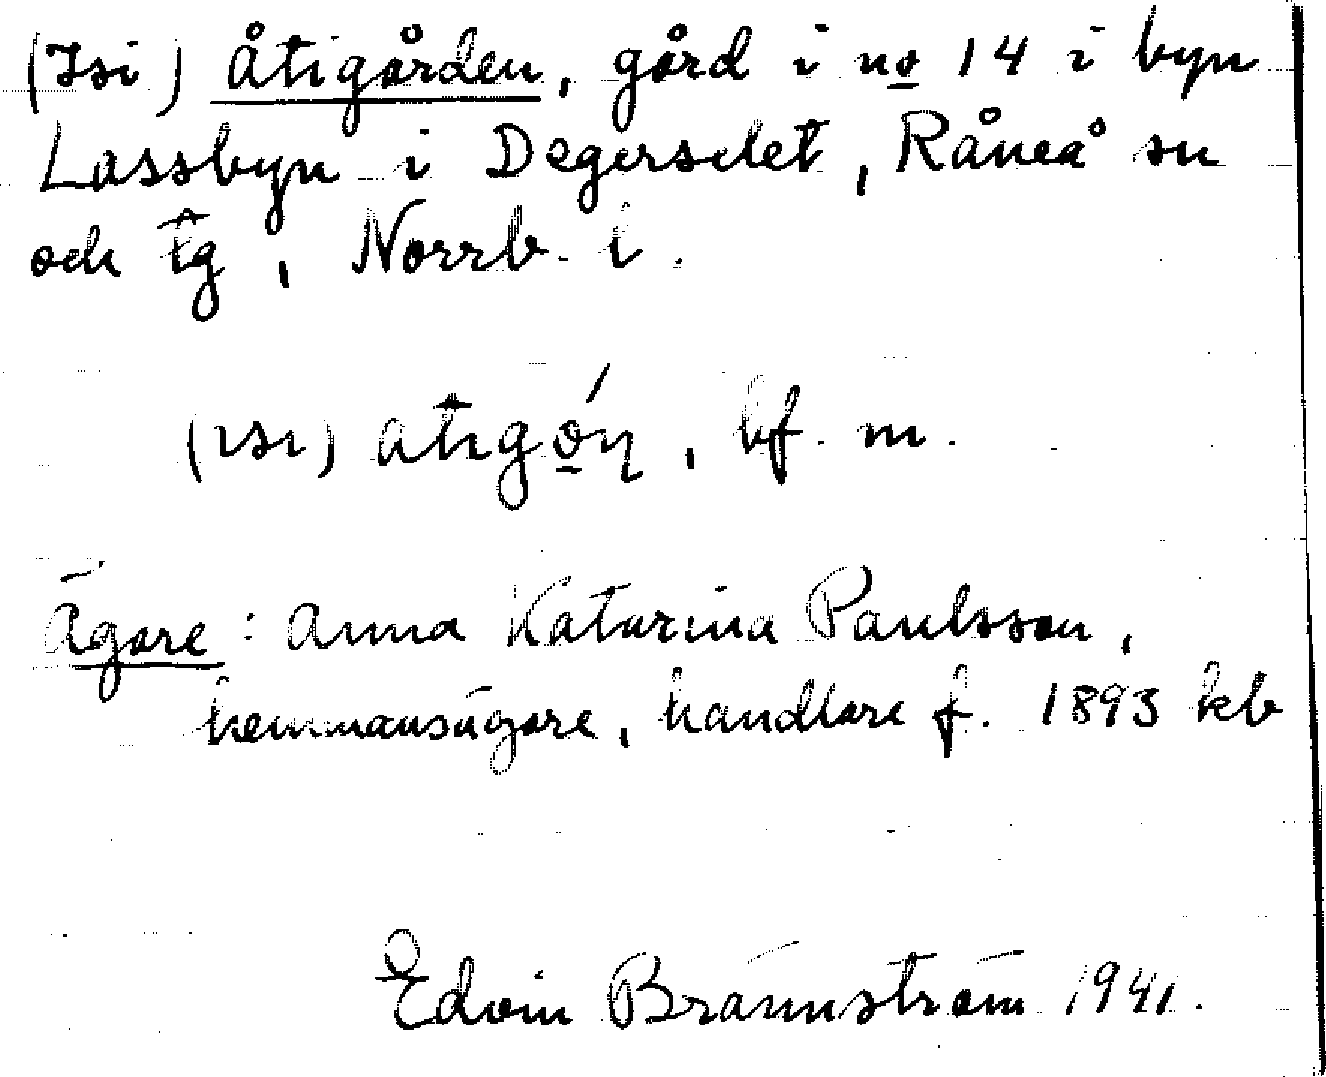 (Isi) Åtigården, gård i no 14 i byn
Lassbyn i Degerselet, Råneå sn
och tg, Norrb. l.
(ısı) atıgǫ́ɳ, bf. m.
Ägare: Anna Katarina Paulsson,
hemmansägare, handlare f. 1893 kb
Edvin Brännström 1941.